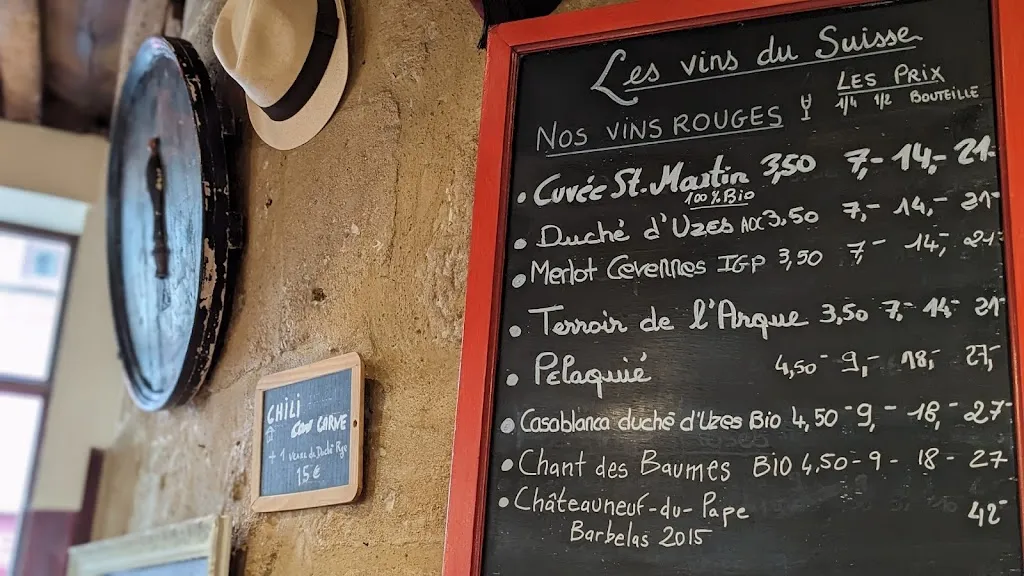 Les vins du Suisse
LES PRIX
NOS VINS ROUGES 1/4 1/2 BOUTEILLE
• Cuvée St-Martin 3,50 7,- 14,- 21-
100% Bio
• Duché d'Uzès AOC 3,50 7,- 14,- 21-
• Merlot Cevennes IGP 3,50 7- 14,- 21-
• Terroir de l'Arque 3,50 7,- 14- 21-
• Pélaquié 4,50- 9,- 18,- 27,-
• Casablanca duché d'Uzès Bio 4,50- 9,- 18,- 27-
• Chant des Baumes BIO 4,50-9- 18- 27
• Châteauneuf-du-Pape 42-
Barbelas 2015
CHILI
CON CARNE
+ 1 verre de Duché
15€